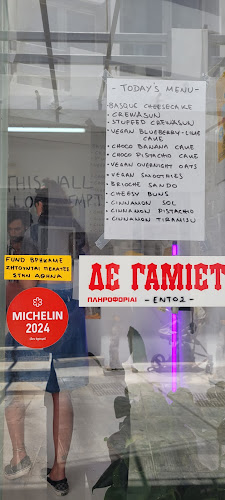 - TODAY'S MENU -
• BASQUE CHEESECAKE
• CREWASUN
• STUFFED CREWASUN
• VEGAN BLUEBERRY-LIME CAKE
• CHOCO BANANA CAKE
• CHOCO PISTACHIO CAKE
• VEGAN OVERNIGHT OATS
• VEGAN SMOOTHIES
• BRIOCHE SANDO
• CHEESY BUNS
• CINNAMON SOL
• CINNAMON PISTACHIO
• CINNAMON TIRAMISU
THIS WALL
FUND ΒΡΗΚΑΜΕ
ΖΗΤΟΥΝΤΑΙ ΠΕΛΑΤΕΣ
ΣΤΗΝ ΑΘΗΝΑ
ΔΕ ΓΑΜΙΕΤ
ΠΛΗΡΟΦΟΡΙΑΙ - ΕΝΤΟΣ -
MICHELIN
2024